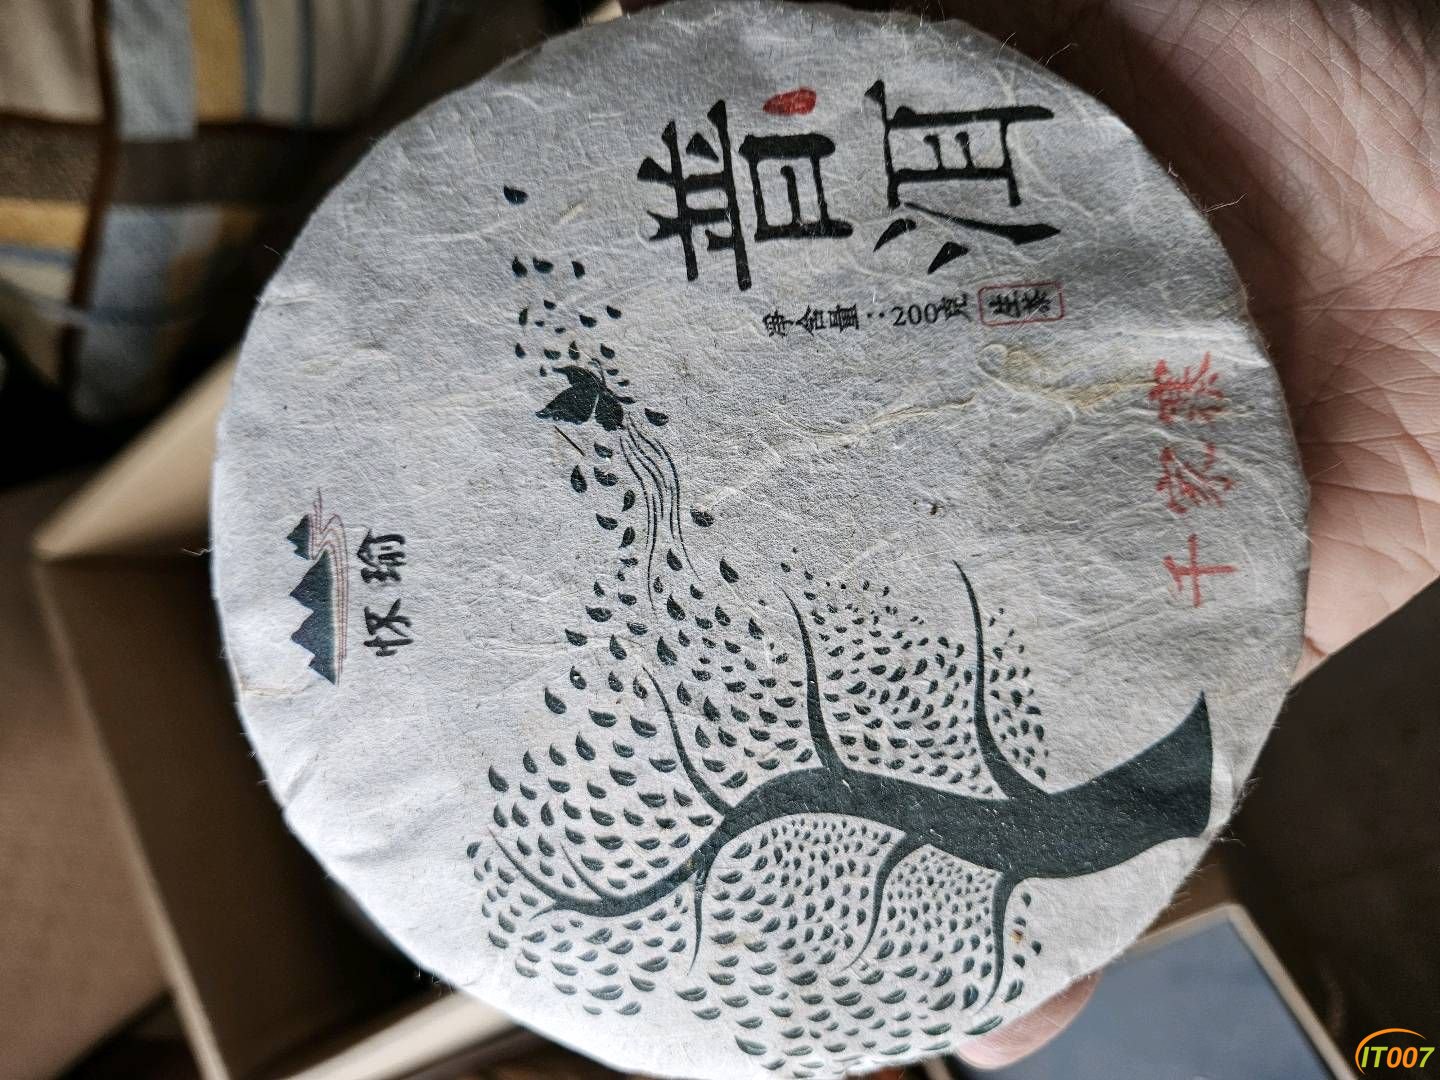 怀瑜
普洱
净含量：200克
生茶
千家寨
IT007